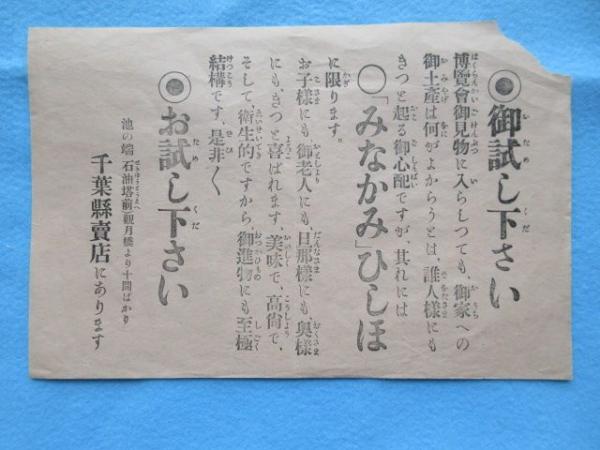 ◉御試し下さい
博覽會御見物に入らしつても、御家への
御土產は何がよからうとは、誰人様にも
きつと起る御心配ですが、其れには
○「みなかみ」ひしほ
に限ります。
お子様にも、御老人にも、旦那様にも、奥様
にも、きつと喜ばれます、美味で、高尙で、
そして、衛生的ですから御進物にも至極
結構です、是非〱
◉お試し下さい
池の端石油塔前(觀月橋より十間ばかり)
千葉縣賣店にあります